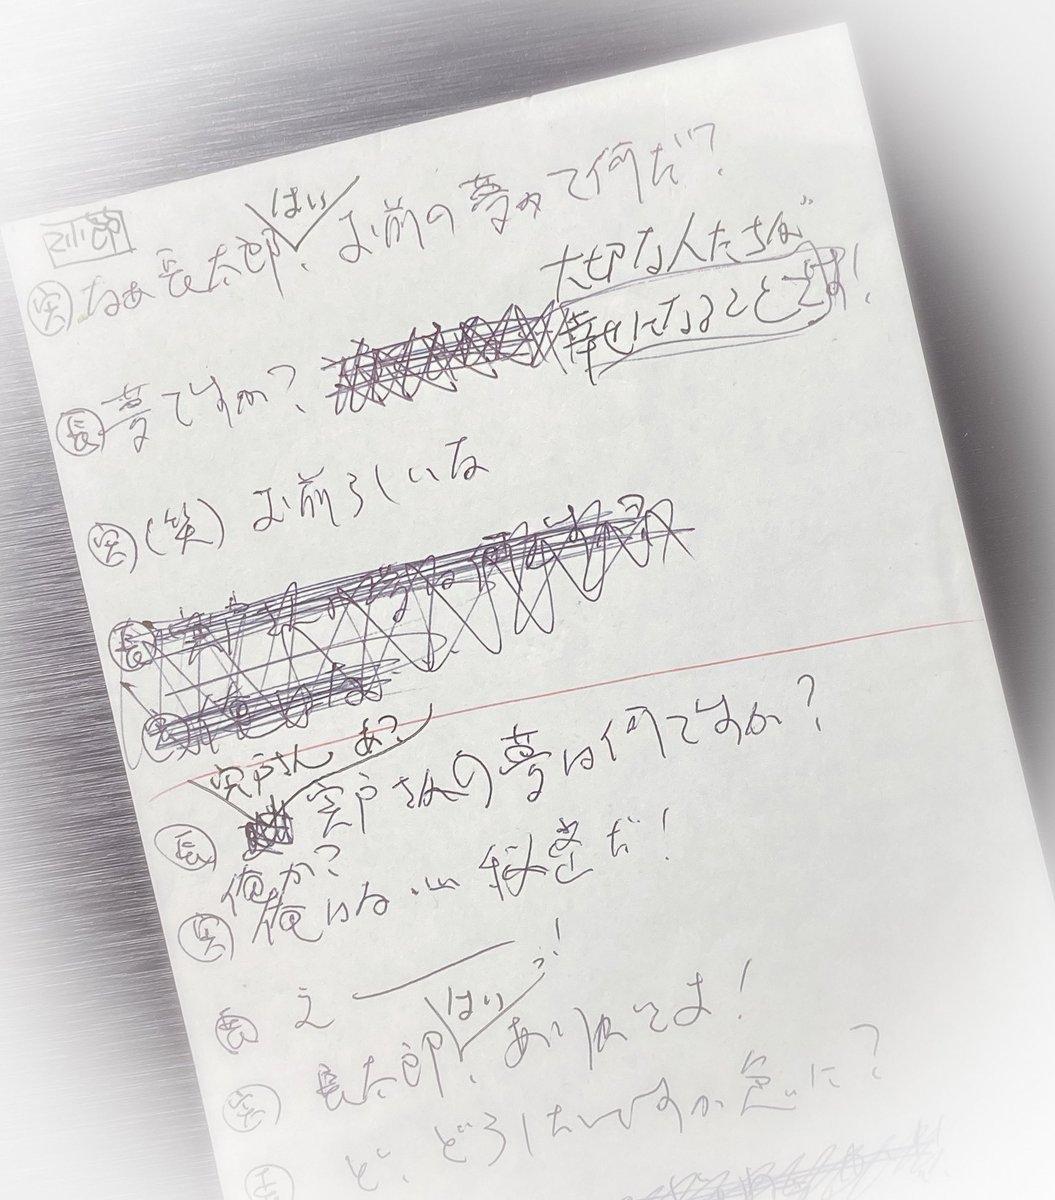 はい
宍 なぁ長太郎、お前の夢って何だ?
大切な人たちが
長 夢ですか? 幸せになることです!
宍 (笑)お前らしいな
宍戸さん あ?
長 宍戸さんの夢は何ですか?
俺か?
宍 俺はな… 秘密だ!
長 え──っ!
はい
宍 長太郎、ありがとな!
長 ど、どうしたんですか急に?